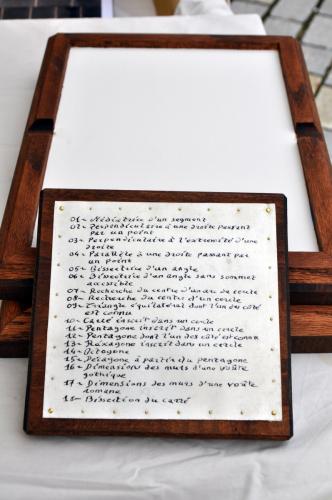 01- Médiatrice d'un segment
02- Perpendiculaire à une droite passant
par un point
03- Perpendiculaire à l'extrémité d'une
droite
04- Parallèle à une droite passant par
un point
05- Bissectrice d'un angle
06- Bissectrice d'un angle sans sommet
accessible
07- Recherche du centre d'un arc de cercle
08- Recherche du centre d'un cercle
09- Triangle équilatéral dont l'un des côté
est connu
10- Carré inscrit dans un cercle
11- Pentagone inscrit dans un cercle
12- Pentagone dont l'un des côté est connu
13- Hexagone inscrit dans un cercle
14- Octogone
15- Décagone à partir du pentagone
16- Dimensions des murs d'une voûte
gothique
17- Dimensions des murs d'une voûte
romane
18- Bissection du carré